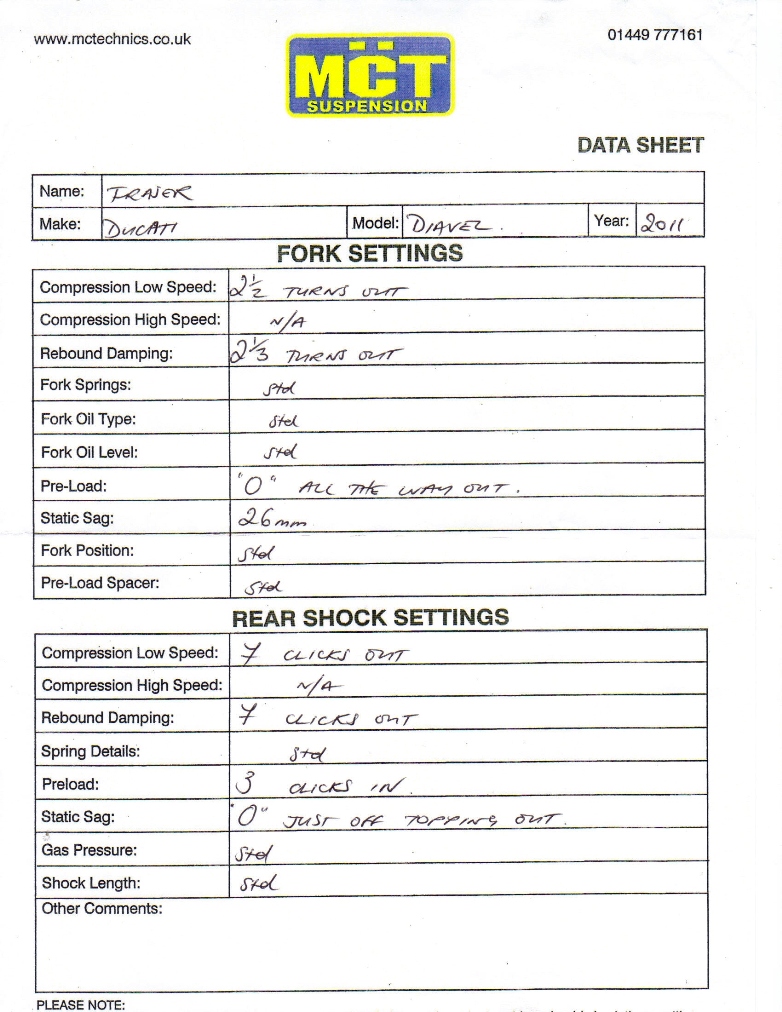 www.mctechnics.co.uk
01449 777161
MCT
SUSPENSION
DATA SHEET
Name: FRASER
Make: DUCATI Model: DIAVEL. Year: 2011
FORK SETTINGS
Compression Low Speed: 2½ TURNS OUT
Compression High Speed: N/A
Rebound Damping: 2⅓ TURNS OUT
Fork Springs: Std
Fork Oil Type: Std
Fork Oil Level: Std
Pre-Load: "0" ALL THE WAY OUT.
Static Sag: 26mm
Fork Position: Std
Pre-Load Spacer: Std
REAR SHOCK SETTINGS
Compression Low Speed: 7 CLICKS OUT
Compression High Speed: N/A
Rebound Damping: 7 CLICKS OUT
Spring Details: Std
Preload: 3 CLICKS IN.
Static Sag: "0" JUST OFF TOPPING OUT.
Gas Pressure: Std
Shock Length: Std
Other Comments:
PLEASE NOTE: